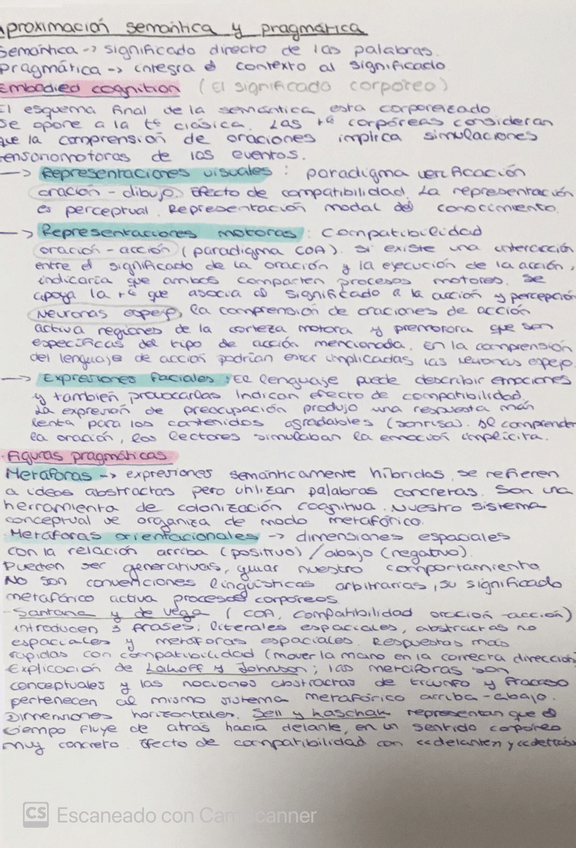 Aproximación semántica y pragmática
Semántica -> significado directo de las palabras.
Pragmática -> integra el contexto al significado
Embodied cognition (El significado corpóreo)
El esquema final de la semántica esta corporeizado
Se opone a la tª clásica. Las tª corpóreas consideran
que la comprensión de oraciones implica simulaciones
sensoriomotoras de los eventos.
-> Representaciones visuales: paradigma verificación
oración-dibujo. Efecto de compatibilidad. La representación
es perceptual. Representación modal del conocimiento.
-> Representaciones motoras: compatibilidad
oración-acción (paradigma COA). Si existe una interacción
entre el significado de la oración y la ejecución de la acción,
indicaría que ambos comparten procesos motores. Se
apoya la tª que asocia el significado a la acción y percepción
Neuronas espejo, la comprensión de oraciones de acción
activa regiones de la corteza motora y premotora que son
específicas del tipo de acción mencionada. En la comprensión
del lenguaje de acción podrían estar implicadas las neuronas espejo.
-> Expresiones faciales: El lenguaje puede describir emociones
y también provocarlas. Indican efecto de compatibilidad.
La expresión de preocupación produjo una respuesta más
lenta para los contenidos agradables (sonrisa). Al comprender
la oración, los lectores simulaban la emoción implícita.
Figuras pragmáticas
Metáforas -> expresiones semánticamente híbridas, se refieren
a ideas abstractas pero utilizan palabras concretas. Son una
herramienta de colonización cognitiva. Nuestro sistema
conceptual se organiza de modo metafórico.
Metáforas orientacionales -> dimensiones espaciales
con la relación arriba (positivo)/abajo (negativo).
Pueden ser generativas, guiar nuestro comportamiento.
No son convenciones lingüísticas arbitrarias, su significado
metafórico activa procesos corpóreos.
- Santana y de Vega (COA, compatibilidad oración-acción)
introducen 3 frases: literales espaciales, abstractas no
espaciales y metáforas espaciales. Respuestas más
rápidas con compatibilidad (mover la mano en la correcta dirección)
Explicación de Lakoff y Johnson; las metáforas son
conceptuales y las nociones abstractas de triunfo y fracaso
pertenecen al mismo sistema metafórico arriba-abajo.
Dimensiones horizontales. Sell y Kaschak representan que el
tiempo fluye de atrás hacia delante, en un sentido corpóreo
muy concreto. Efecto de compatibilidad con <<delante>> y <<detrás
CS Escaneado con CamScanner